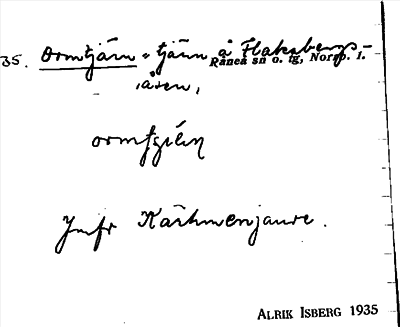 35. Ormtjärn = tjärn å Flakabergs-
Råneå sn o. tg, Norrb. l.
åsen,
ormtjȩ́n
Jmfr Kärhmenjaure.
ALRIK ISBERG 1935